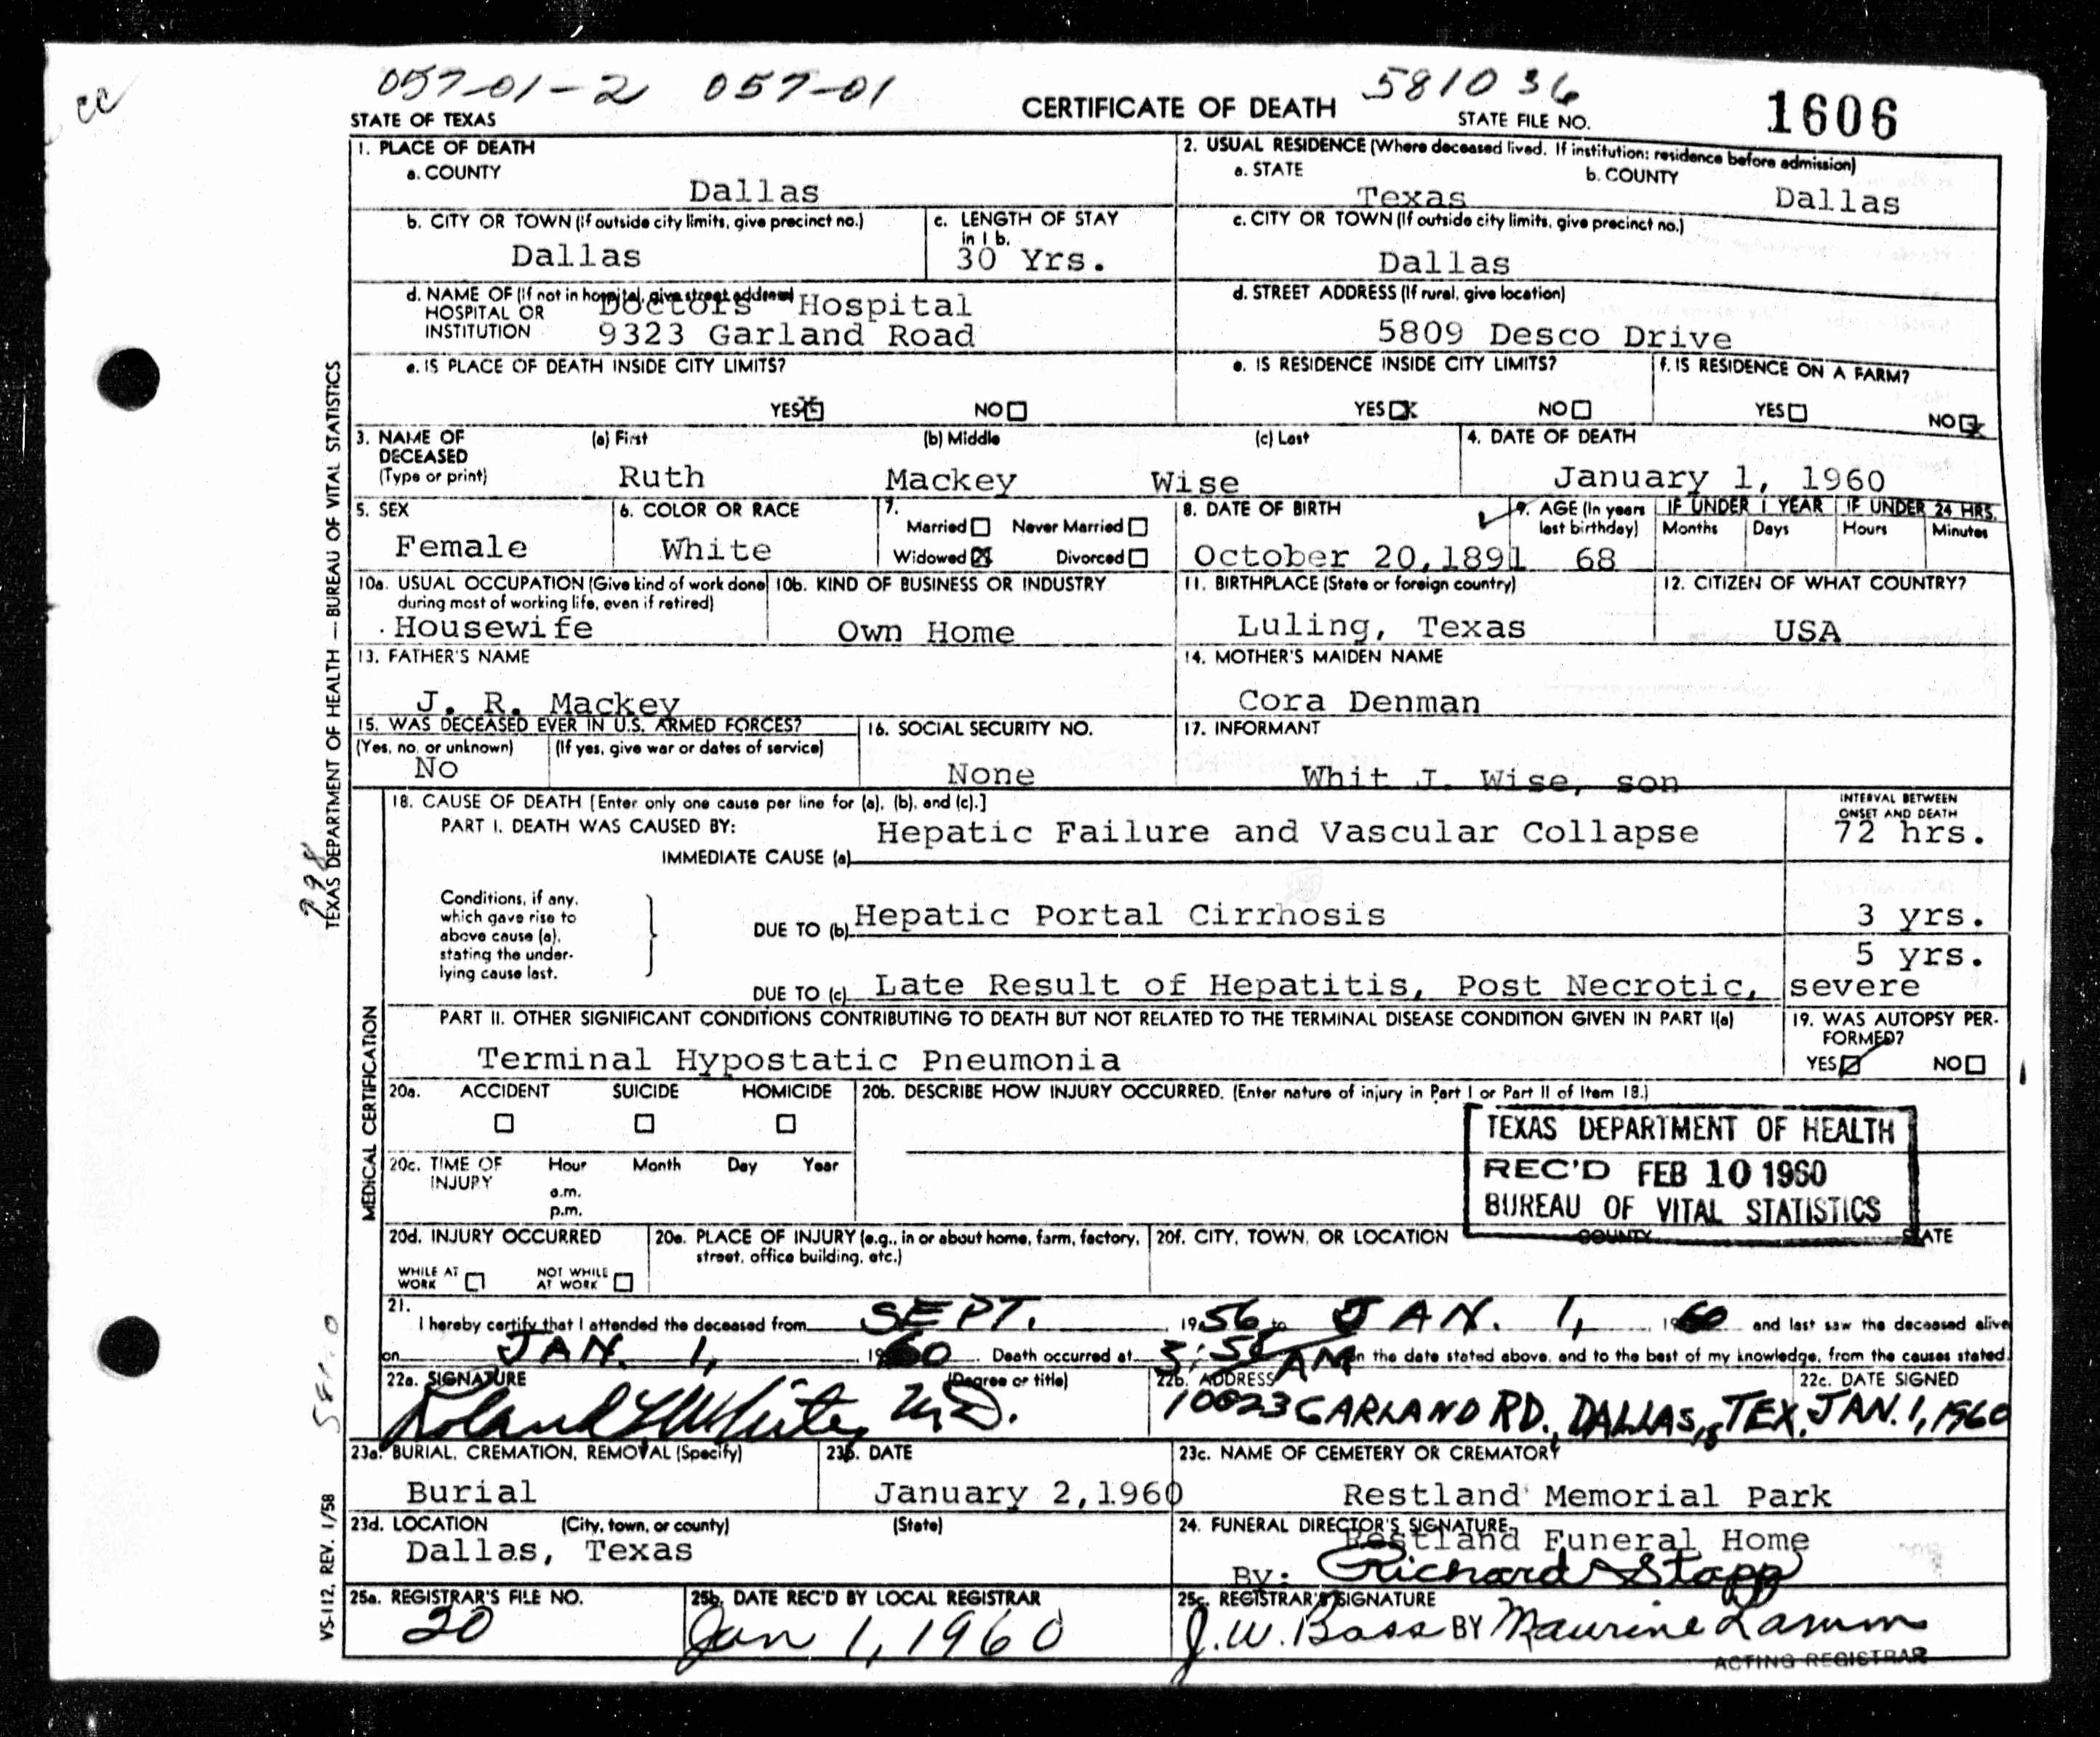 cc
057-01-2 057-01
581036
STATE OF TEXAS
CERTIFICATE OF DEATH
STATE FILE NO.
1606
1. PLACE OF DEATH
a. COUNTY
Dallas
2. USUAL RESIDENCE (Where deceased lived. If institution: residence before admission)
a. STATE
Texas
b. COUNTY
Dallas
b. CITY OR TOWN (if outside city limits, give precinct no.)
Dallas
c. LENGTH OF STAY
in 1 b.
30 Yrs.
c. CITY OR TOWN (If outside city limits, give precinct no.)
Dallas
d. NAME OF (If not in hospital, give street address)
HOSPITAL OR
INSTITUTION
Doctors Hospital
9323 Garland Road
d. STREET ADDRESS (If rural, give location)
5809 Desco Drive
e. IS PLACE OF DEATH INSIDE CITY LIMITS?
YES NO
e. IS RESIDENCE INSIDE CITY LIMITS?
YES NO
f. IS RESIDENCE ON A FARM?
YES NO
3. NAME OF
DECEASED
(Type or print)
(a) First
Ruth
(b) Middle
Mackey
(c) Last
Wise
4. DATE OF DEATH
January 1, 1960
5. SEX
Female
6. COLOR OR RACE
White
7.
Married Never Married
Widowed Divorced
8. DATE OF BIRTH
October 20,1891
9. AGE (In years
last birthday)
68
IF UNDER 1 YEAR
Months Days
IF UNDER 24 HRS.
Hours Minutes
10a. USUAL OCCUPATION (Give kind of work done
during most of working life, even if retired)
Housewife
10b. KIND OF BUSINESS OR INDUSTRY
Own Home
11. BIRTHPLACE (State or foreign country)
Luling, Texas
12. CITIZEN OF WHAT COUNTRY?
USA
13. FATHER'S NAME
J. R. Mackey
14. MOTHER'S MAIDEN NAME
Cora Denman
15. WAS DECEASED EVER IN U.S. ARMED FORCES?
(Yes, no, or unknown) (If yes, give war or dates of service)
No
16. SOCIAL SECURITY NO.
None
17. INFORMANT
Whit J. Wise, son
18. CAUSE OF DEATH [Enter only one cause per line for (a), (b), and (c).]
PART I. DEATH WAS CAUSED BY:
IMMEDIATE CAUSE (a) Hepatic Failure and Vascular Collapse
INTERVAL BETWEEN
ONSET AND DEATH
72 hrs.
Conditions, if any,
which gave rise to
above cause (a),
stating the under-
lying cause last.
DUE TO (b) Hepatic Portal Cirrhosis
3 yrs.
5 yrs.
DUE TO (c) Late Result of Hepatitis, Post Necrotic, severe
PART II. OTHER SIGNIFICANT CONDITIONS CONTRIBUTING TO DEATH BUT NOT RELATED TO THE TERMINAL DISEASE CONDITION GIVEN IN PART I(a)
Terminal Hypostatic Pneumonia
19. WAS AUTOPSY PER-
FORMED?
YES NO
20a. ACCIDENT SUICIDE HOMICIDE
20b. DESCRIBE HOW INJURY OCCURRED. (Enter nature of injury in Part I or Part II of Item 18.)
TEXAS DEPARTMENT OF HEALTH
REC'D FEB 10 1960
BUREAU OF VITAL STATISTICS
20c. TIME OF
INJURY
Hour Month Day Year
a.m.
p.m.
20d. INJURY OCCURRED
WHILE AT
WORK
NOT WHILE
AT WORK
20e. PLACE OF INJURY (e.g., in or about home, farm, factory,
street, office building, etc.)
20f. CITY, TOWN, OR LOCATION COUNTY STATE
21.
I hereby certify that I attended the deceased from SEPT. 1956 to JAN. 1, 1960 and last saw the deceased alive
on JAN. 1, 1960. Death occurred at AM on the date stated above, and to the best of my knowledge, from the causes stated.
22a. SIGNATURE (Degree or title)
Roland L White, M.D.
22b. ADDRESS
10023 GARLAND RD., DALLAS, TEX.
22c. DATE SIGNED
JAN. 1, 1960
23a. BURIAL, CREMATION, REMOVAL (Specify)
Burial
23b. DATE
January 2,1960
23c. NAME OF CEMETERY OR CREMATORY
Restland Memorial Park
23d. LOCATION (City, town, or county) (State)
Dallas, Texas
24. FUNERAL DIRECTOR'S SIGNATURE
Restland Funeral Home
By: Richard Stapp
25a. REGISTRAR'S FILE NO.
20
25b. DATE REC'D BY LOCAL REGISTRAR
Jan 1, 1960
25c. REGISTRAR'S SIGNATURE
J.W. Bass BY Maurine Lamm
ACTING REGISTRAR
TEXAS DEPARTMENT OF HEALTH — BUREAU OF VITAL STATISTICS
MEDICAL CERTIFICATION
581.0
VS-112, REV. 1/58